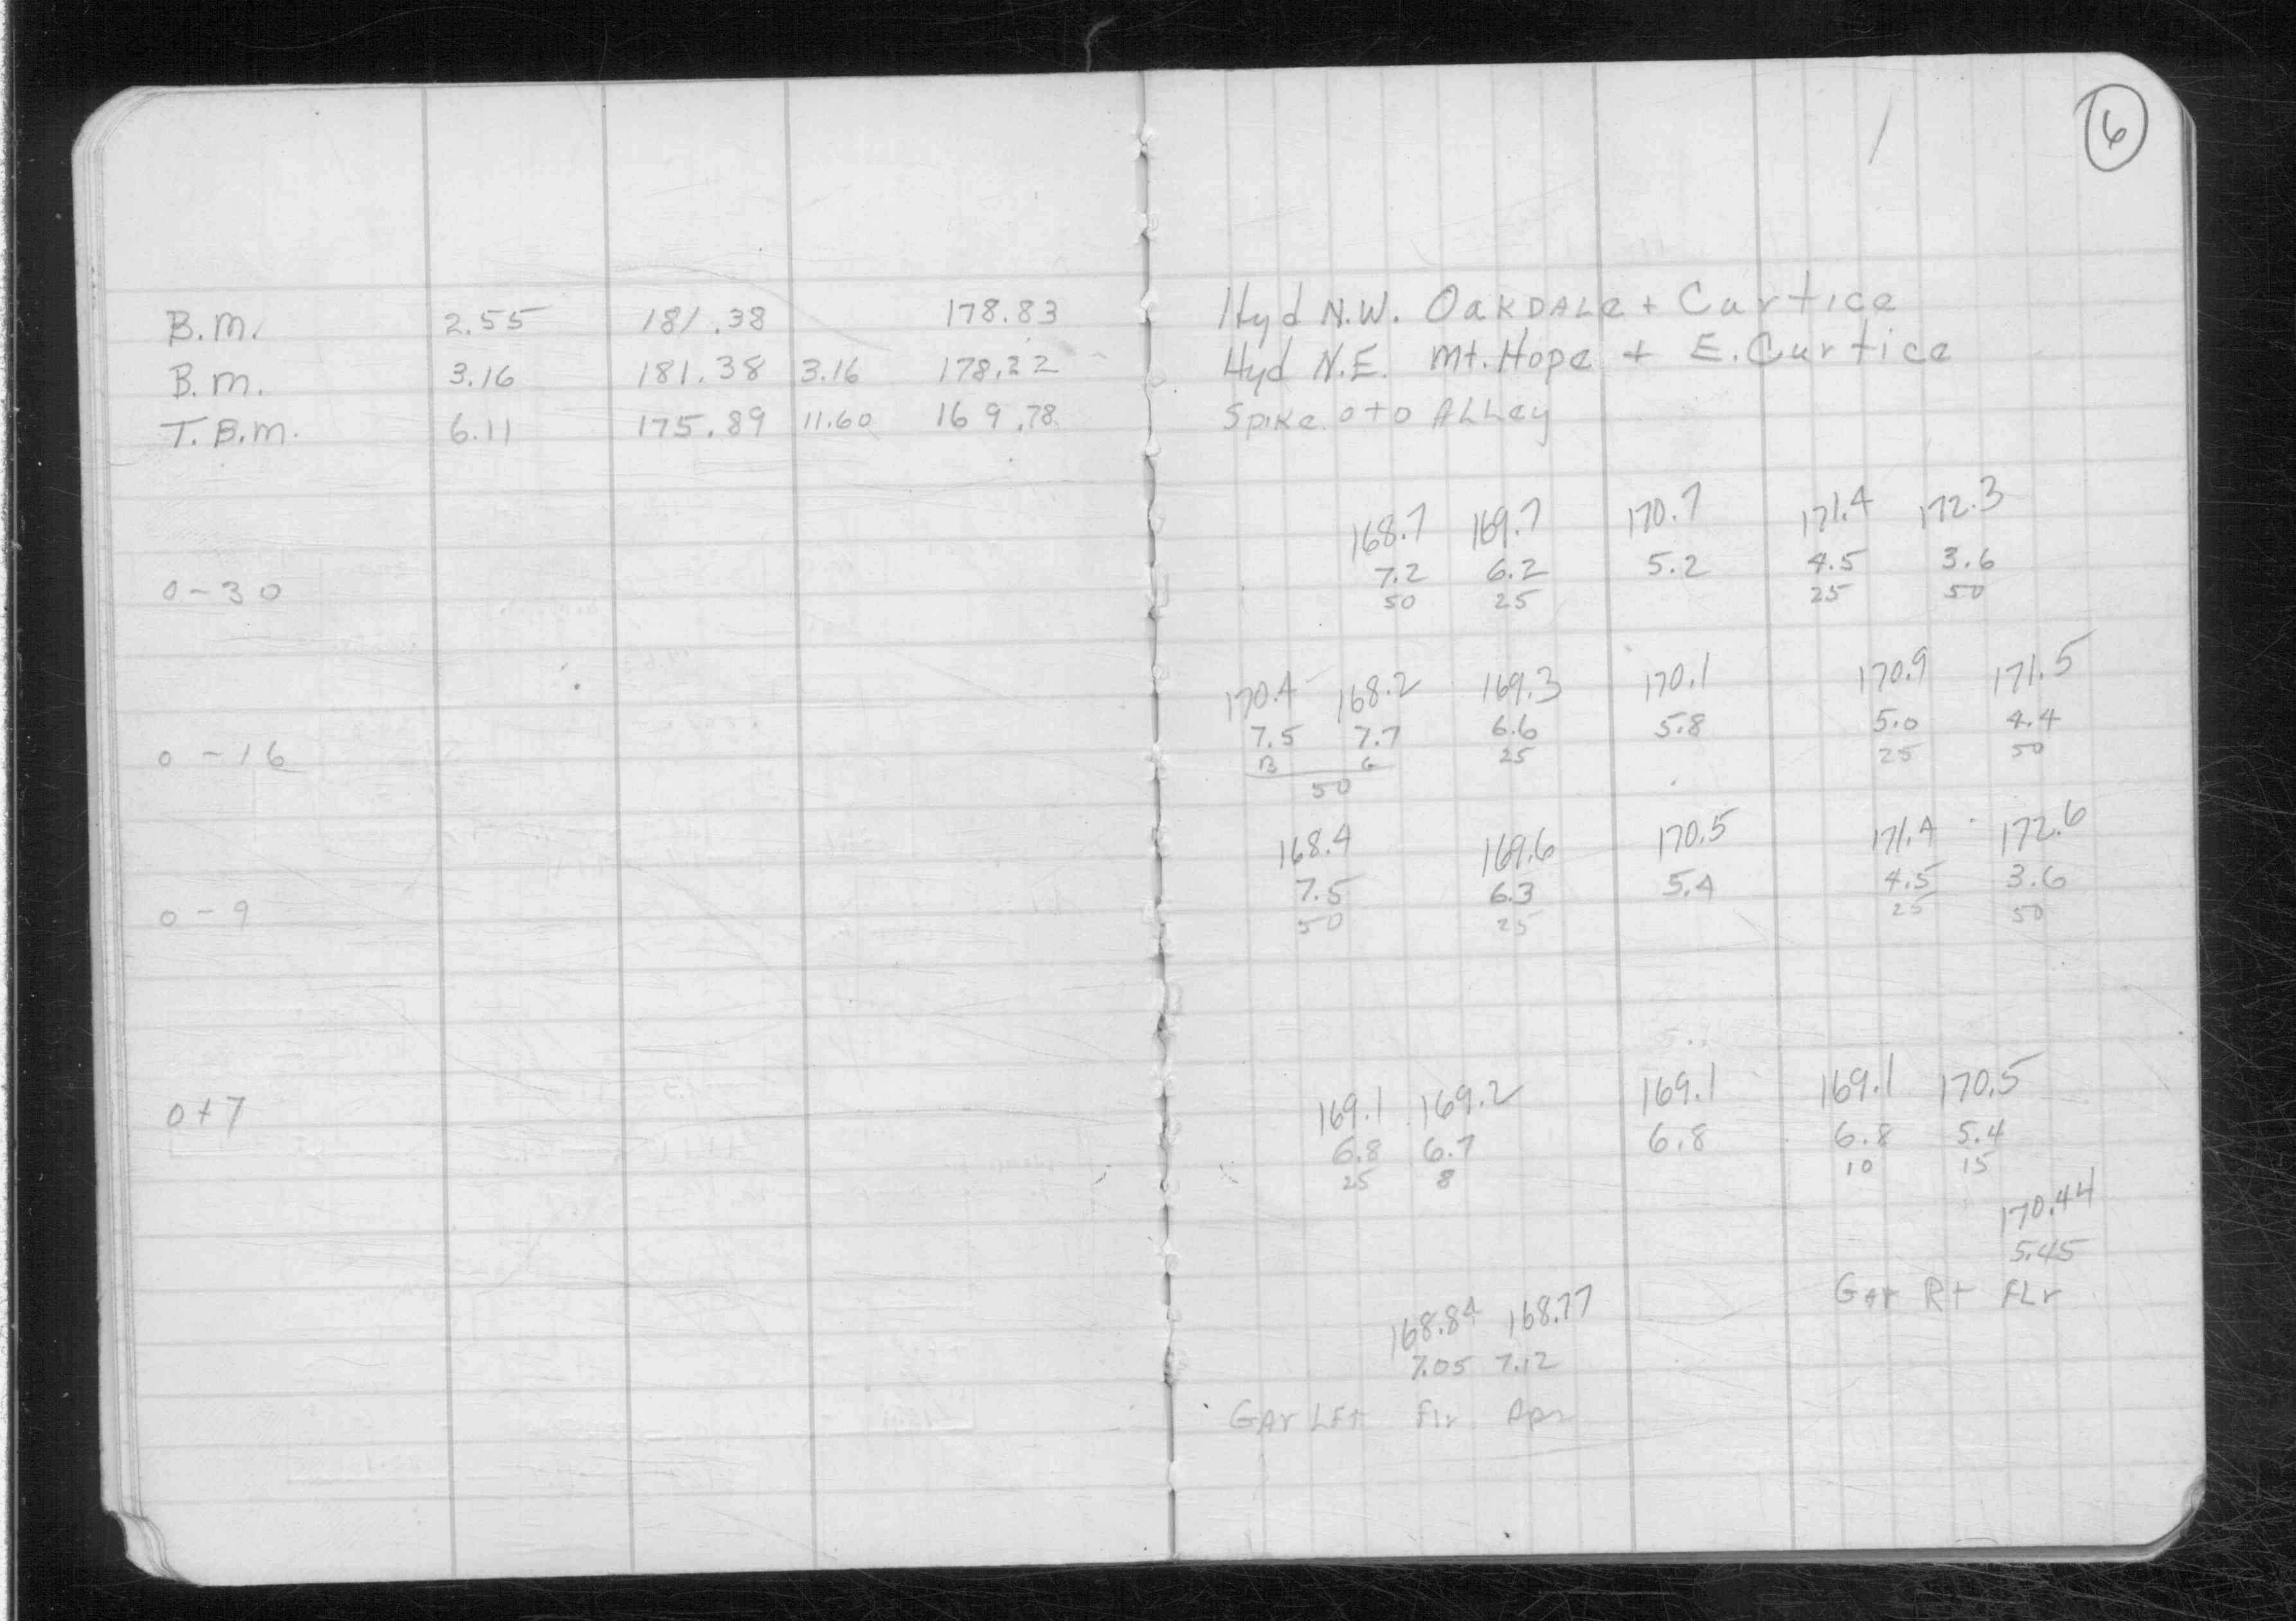 6
B.M. 2.55 181.38 178.83 Hyd N.W. OAKDALe + Curtice
B.M. 3.16 181.38 3.16 178.22 Hyd N.E. Mt. Hope + E. Curtice
T.B.M. 6.11 175.89 11.60 169.78 Spike 0+0 ALLey
168.7 169.7 170.7 171.4 172.3
0-30 7.2 6.2 5.2 4.5 3.6
50 25 25 50
170.4 168.2 169.3 170.1 170.9 171.5
0-16 7.5 7.7 6.6 5.8 5.0 4.4
B G 25 25 50
50
168.4 169.6 170.5 171.4 172.6
0-9 7.5 6.3 5.4 4.5 3.6
50 25 25 50
169.1 169.2 169.1 169.1 170.5
0+7 6.8 6.7 6.8 6.8 5.4
25 8 10 15
170.44
5.45
GAr Rt FLr
168.84 168.77
7.05 7.12
GAr LFt Flr Apr